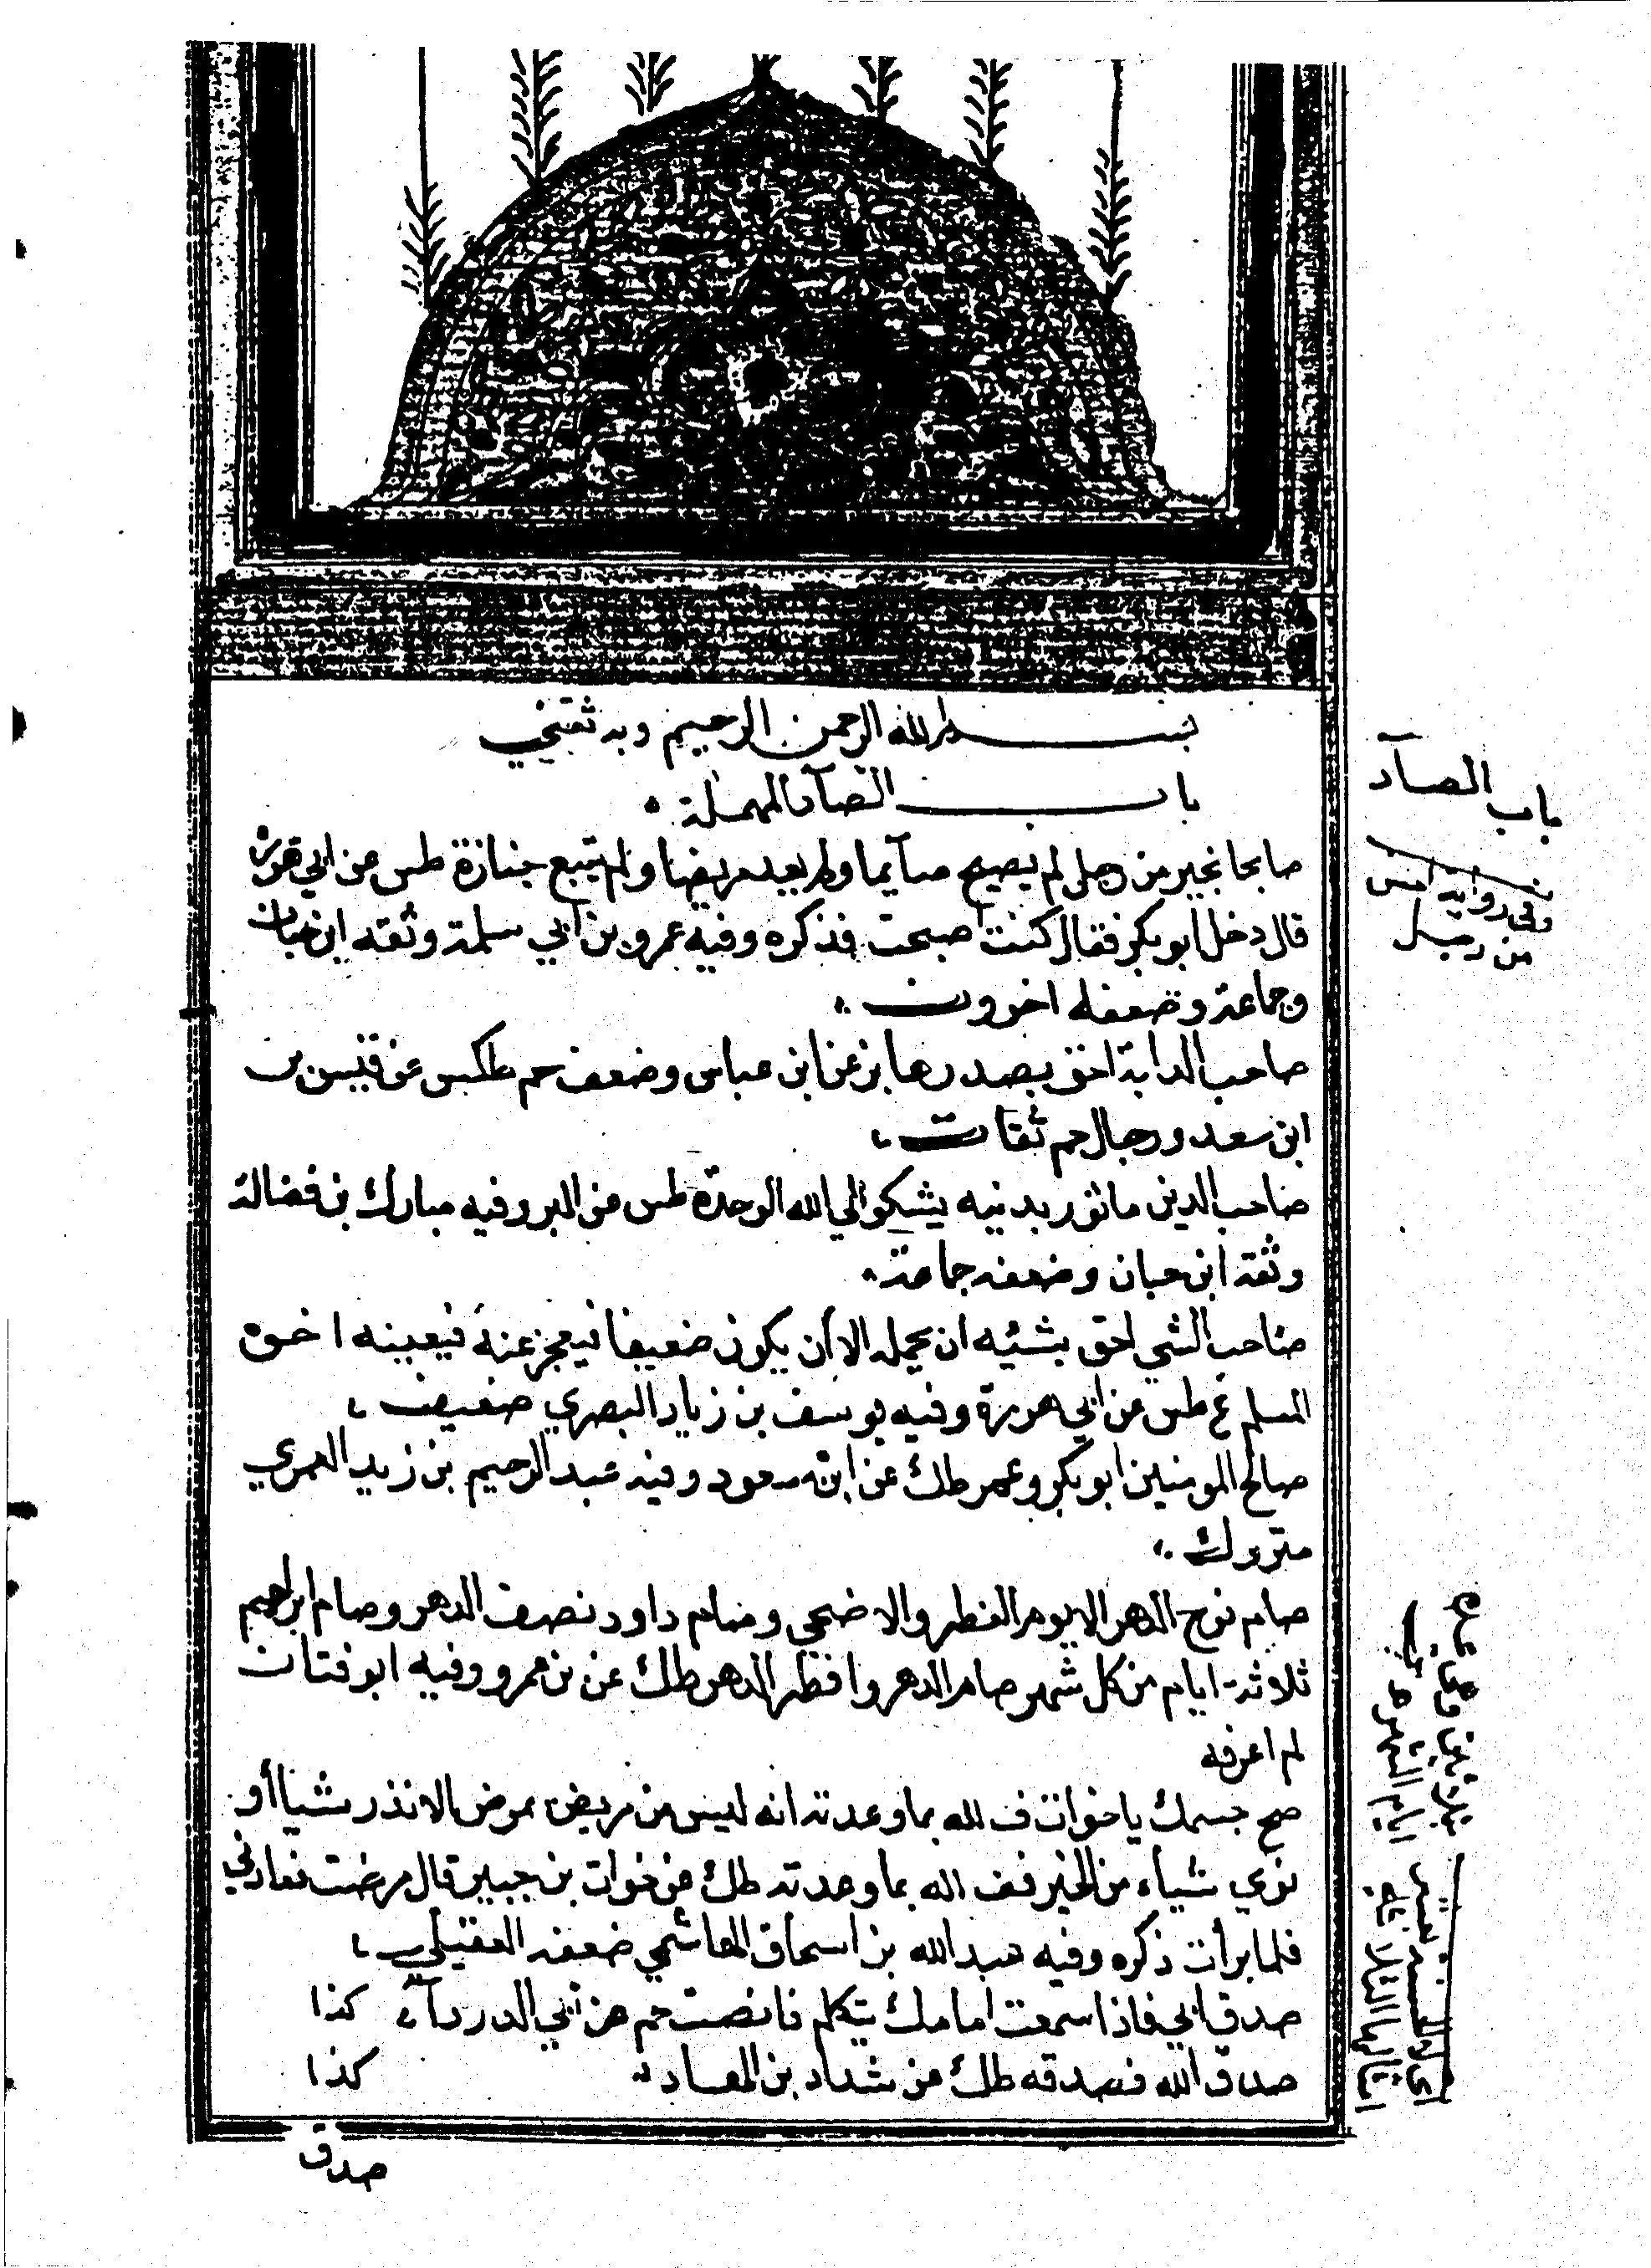 بسم الله الرحمن الرحيم وبه ثقتي
باب الصاد المهملة
باب الصآد
صابحا بخير من رجل لم يصبح صآيما ولم يعد مريضا ولم يتبع جنازة طس عن ابي هريرة
قال دخل ابو بكر فقال كنت اصبحت فذكره وفيه عمرو بن ابي سلمة وثقه ابن حبان
وجماعة وضعفه اخرون
وفي رواية
من رجل
صاحب الدابة احق بصدرها بز عن ابن عباس وضعف حم طكس عن قيس بن
ابن سعد ورجال حم ثقات
صاحب الدين ماثور بدينه يشكو الي الله الوحدة طس عن البر وفيه مبارك بن فضالة
وثقه ابن حبان وضعفه جماعة
صاحب الشي احق بشيه ان يحمله الا أن يكون ضعيفا فيعجز عنه فيعينه اخوه
المسلم ع طس عن ابي هريرة وفيه يوسف بن زياد البصري ضعيف
صالح المومنين ابو بكر وعمر طك عن ابن مسعود وفيه عبد الرحيم بن زيد العمري
متروك
صام نوح الدهر الا يوم الفطر والاضحي وصام داود نصف الدهر وصام ابراهيم
ثلاثة ايام من كل شهر صام الدهر وافطر الدهر طك عن بن عمرو وفيه ابو فتان
لم اعرفه
صح جسمك يا خوات ف لله بما وعدته انه ليس من مريض يمرض الا نذر شيا أو
نوي شياء من الخير فف الله بما وعدته طك عن خوات بن جبير قال مرضت فعادني
فلما برأت ذكره وفيه عبد الله بن اسحاق الهاشمي ضعفه العقيلي
صدق ابي فاذا سمعت امامك يتكلم فانصت حم عن ابي الدرداء كذا
صدق الله فصدقه طك عن شداد بن الهاد كذا
صدق